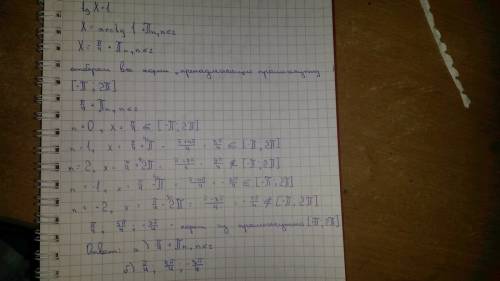 tg x = 1
x = arctg 1 + πn, n∈z
x = π/4 + πn, n∈z
отберем все корни, принадлежащие промежутку
[-π; 2π]
π/4 + πn, n∈z
n=0, x = π/4 ∈ [-π; 2π]
n=1, x = π/4 + π = (π+4π)/4 = 5π/4 ∈ [-π; 2π]
n=2, x = π/4 + 2π = = 9π/4 ∉ [-π; 2π]
n=-1, x = π/4 - π = = -3π/4 ∈ [-π; 2π]
n=-2, x = π/4 - 2π = = ∉ [-π; 2π]
π/4, 5π/4, -3π/4 - корни из промежутка [-π; 2π]
Ответ: а) π/4 + πn, n∈z
б) π/4, 5π/4, -3π/4